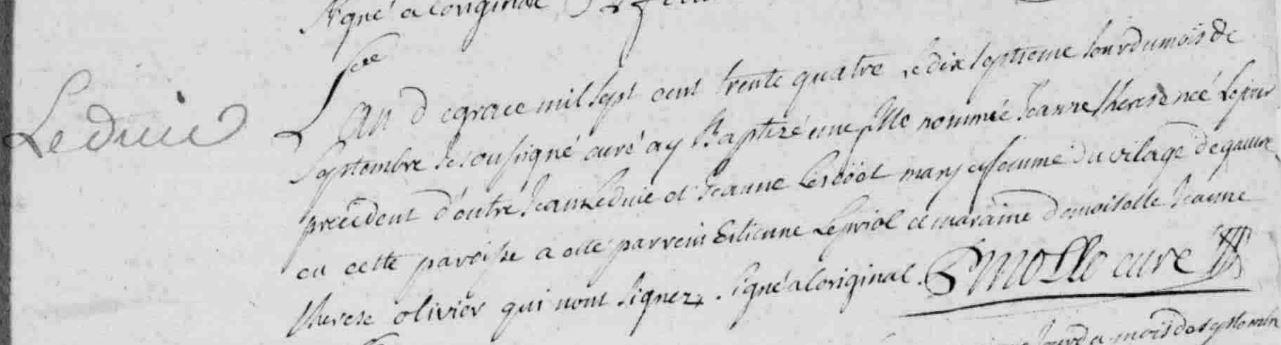 signé a loriginal
Leduic
L'an de grace mil sept cent trente quatre Le dix septieme Jour du mois de
Septembre Je soussigné curé ay Baptizé une fille nommée Jeanne therese née Le jour
précédent d'entre Jean Leduic et Jeanne mary et femme du vilage de
en cette paroisse a eté parrein Estienne Lepriol et maraine demoiselle Jeanne
therese olivier qui nont signez. signé a loriginal. curé
mois de septembre